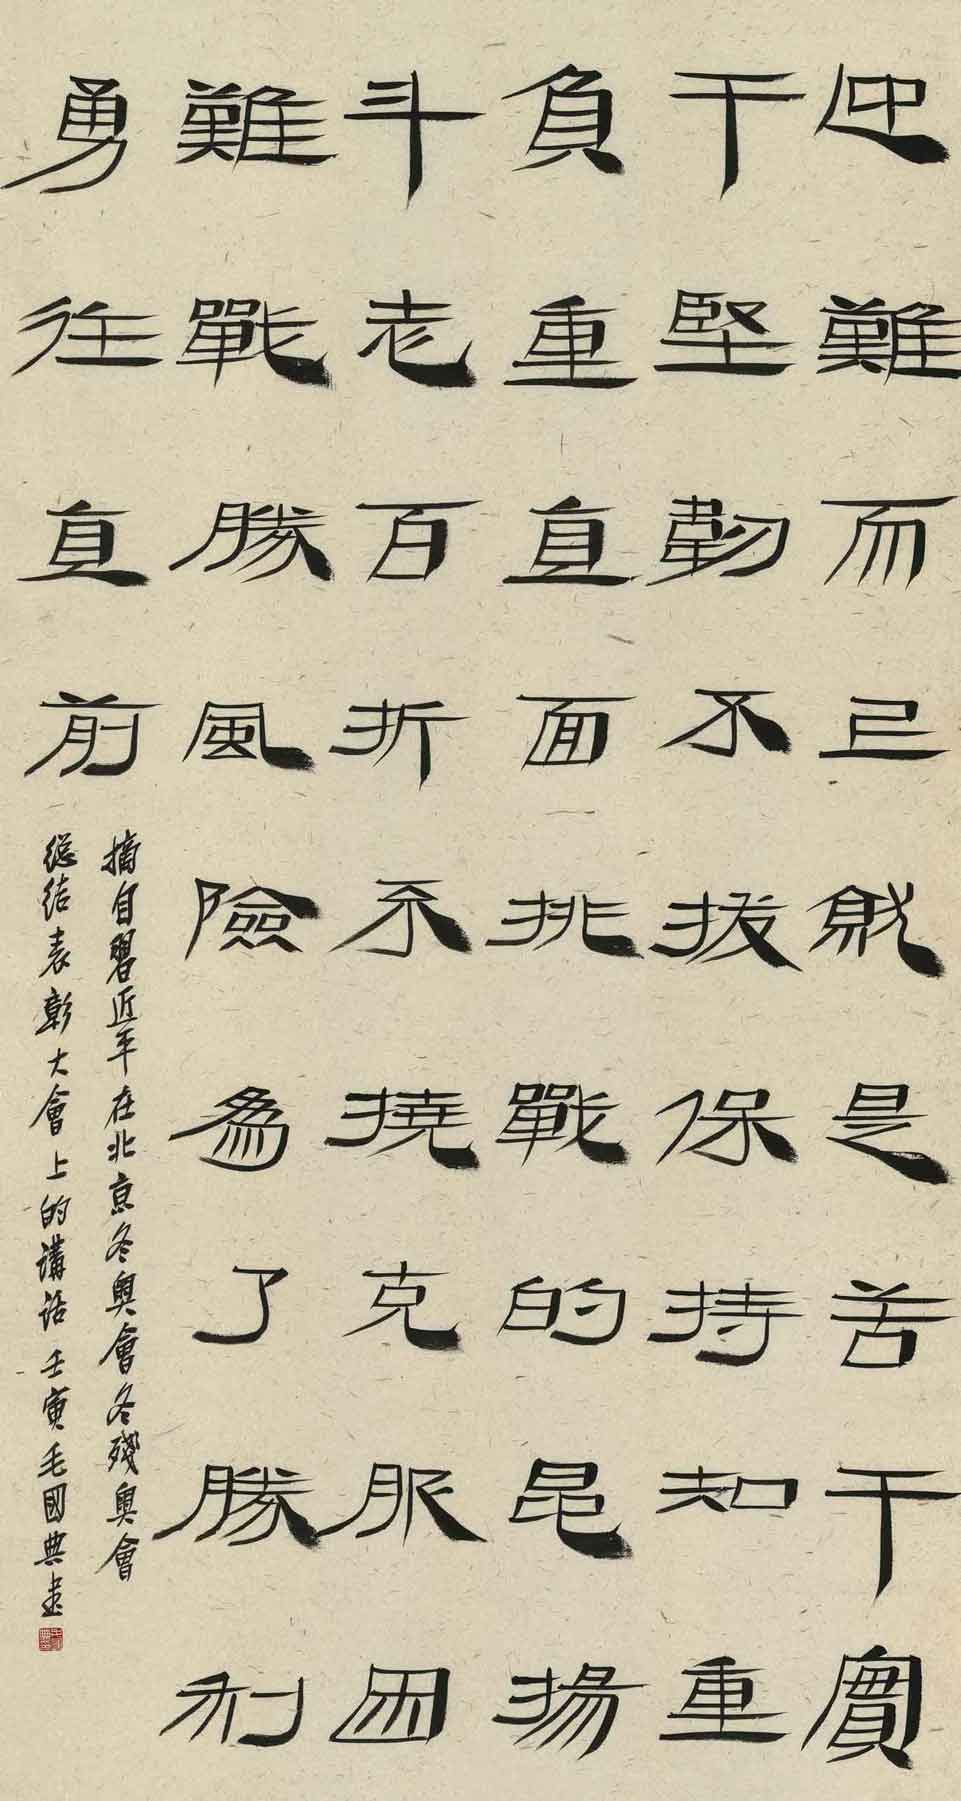 迎難而上就是苦干實
干堅韌不拔保持知重
負重直面挑戰的昂揚
斗志百折不撓克服困
難戰勝風險爲了勝利
勇往直前
摘自習近平在北京冬奧會冬殘奧會
總結表彰大會上的講話壬寅毛國典書